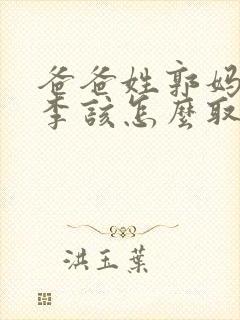 爸爸姓郭妈
李該怎麼取
洪玉葉